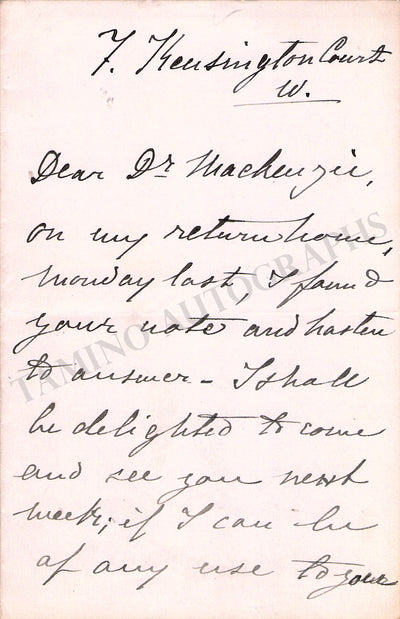 7. Kensington Court
W.
Dear Dr Mackenzie,
on my return home,
Monday last, I found
your note and hasten
to answer - I shall
be delighted to come
and see you next
week; if I can be
of any use to your
TAMINO AUTOGRAPHS